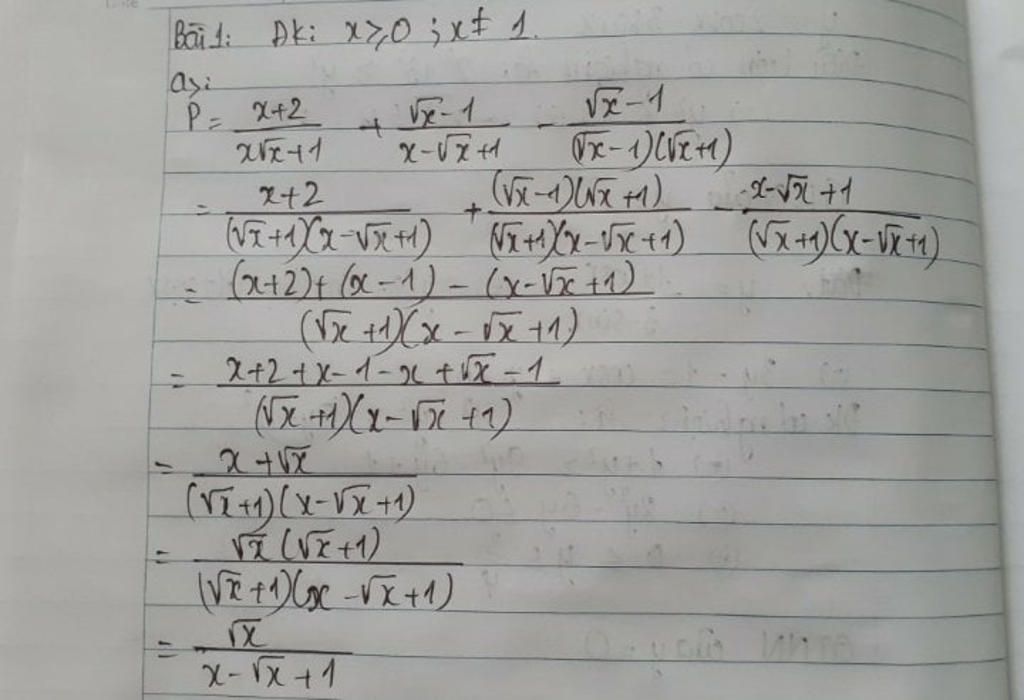 Bài 1: Đk: x ≥ 0 ; x ≠ 1.
a>:
P = \frac{x+2}{x\sqrt{x}+1} + \frac{\sqrt{x}-1}{x-\sqrt{x}+1} - \frac{\sqrt{x}-1}{(\sqrt{x}-1)(\sqrt{x}+1)}
= \frac{x+2}{(\sqrt{x}+1)(x-\sqrt{x}+1)} + \frac{(\sqrt{x}-1)(\sqrt{x}+1)}{(\sqrt{x}+1)(x-\sqrt{x}+1)} - \frac{x-\sqrt{x}+1}{(\sqrt{x}+1)(x-\sqrt{x}+1)}
= \frac{(x+2)+(x-1)-(x-\sqrt{x}+1)}{(\sqrt{x}+1)(x-\sqrt{x}+1)}
= \frac{x+2+x-1-x+\sqrt{x}-1}{(\sqrt{x}+1)(x-\sqrt{x}+1)}
= \frac{x+\sqrt{x}}{(\sqrt{x}+1)(x-\sqrt{x}+1)}
= \frac{\sqrt{x}(\sqrt{x}+1)}{(\sqrt{x}+1)(x-\sqrt{x}+1)}
= \frac{\sqrt{x}}{x-\sqrt{x}+1}